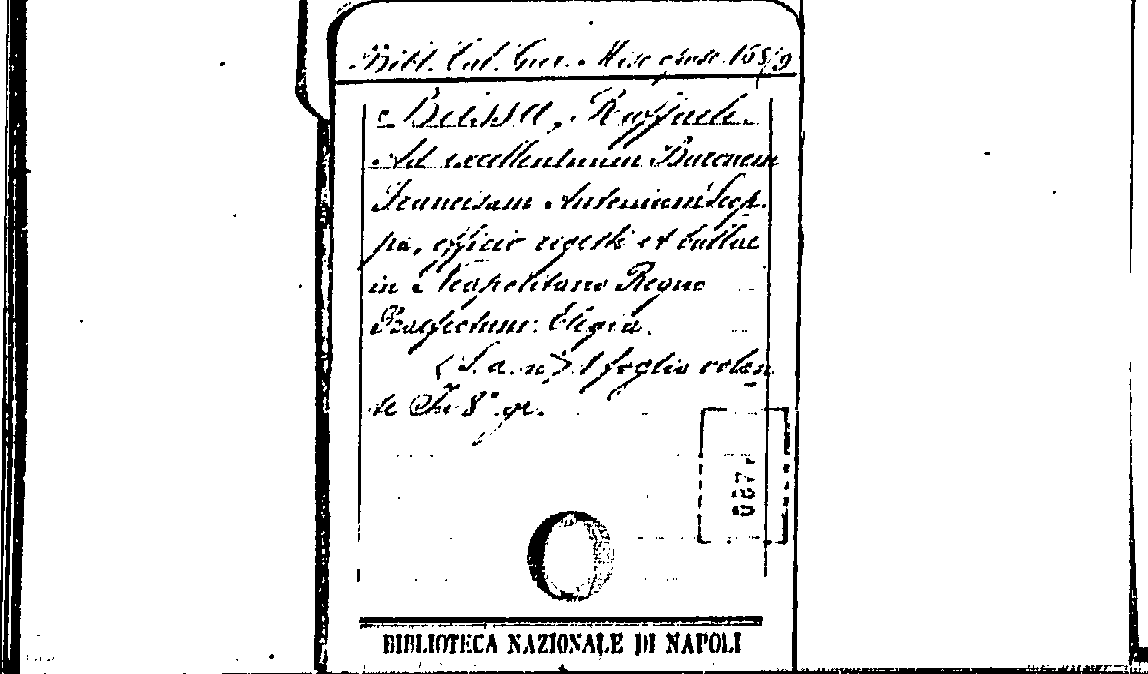 Bibl. Cal. Gov. Misc. 165/9
Raffaele.
Ad excellentissimum Baronem
Franciscum Antonium Scop-
pa, officio regesti et bullae
in Neapolitano Regno
Praefectum: Elegia.
(S. a. n.) 1 foglio volan
te In 8° gr.
BIBLIOTECA NAZIONALE DI NAPOLI